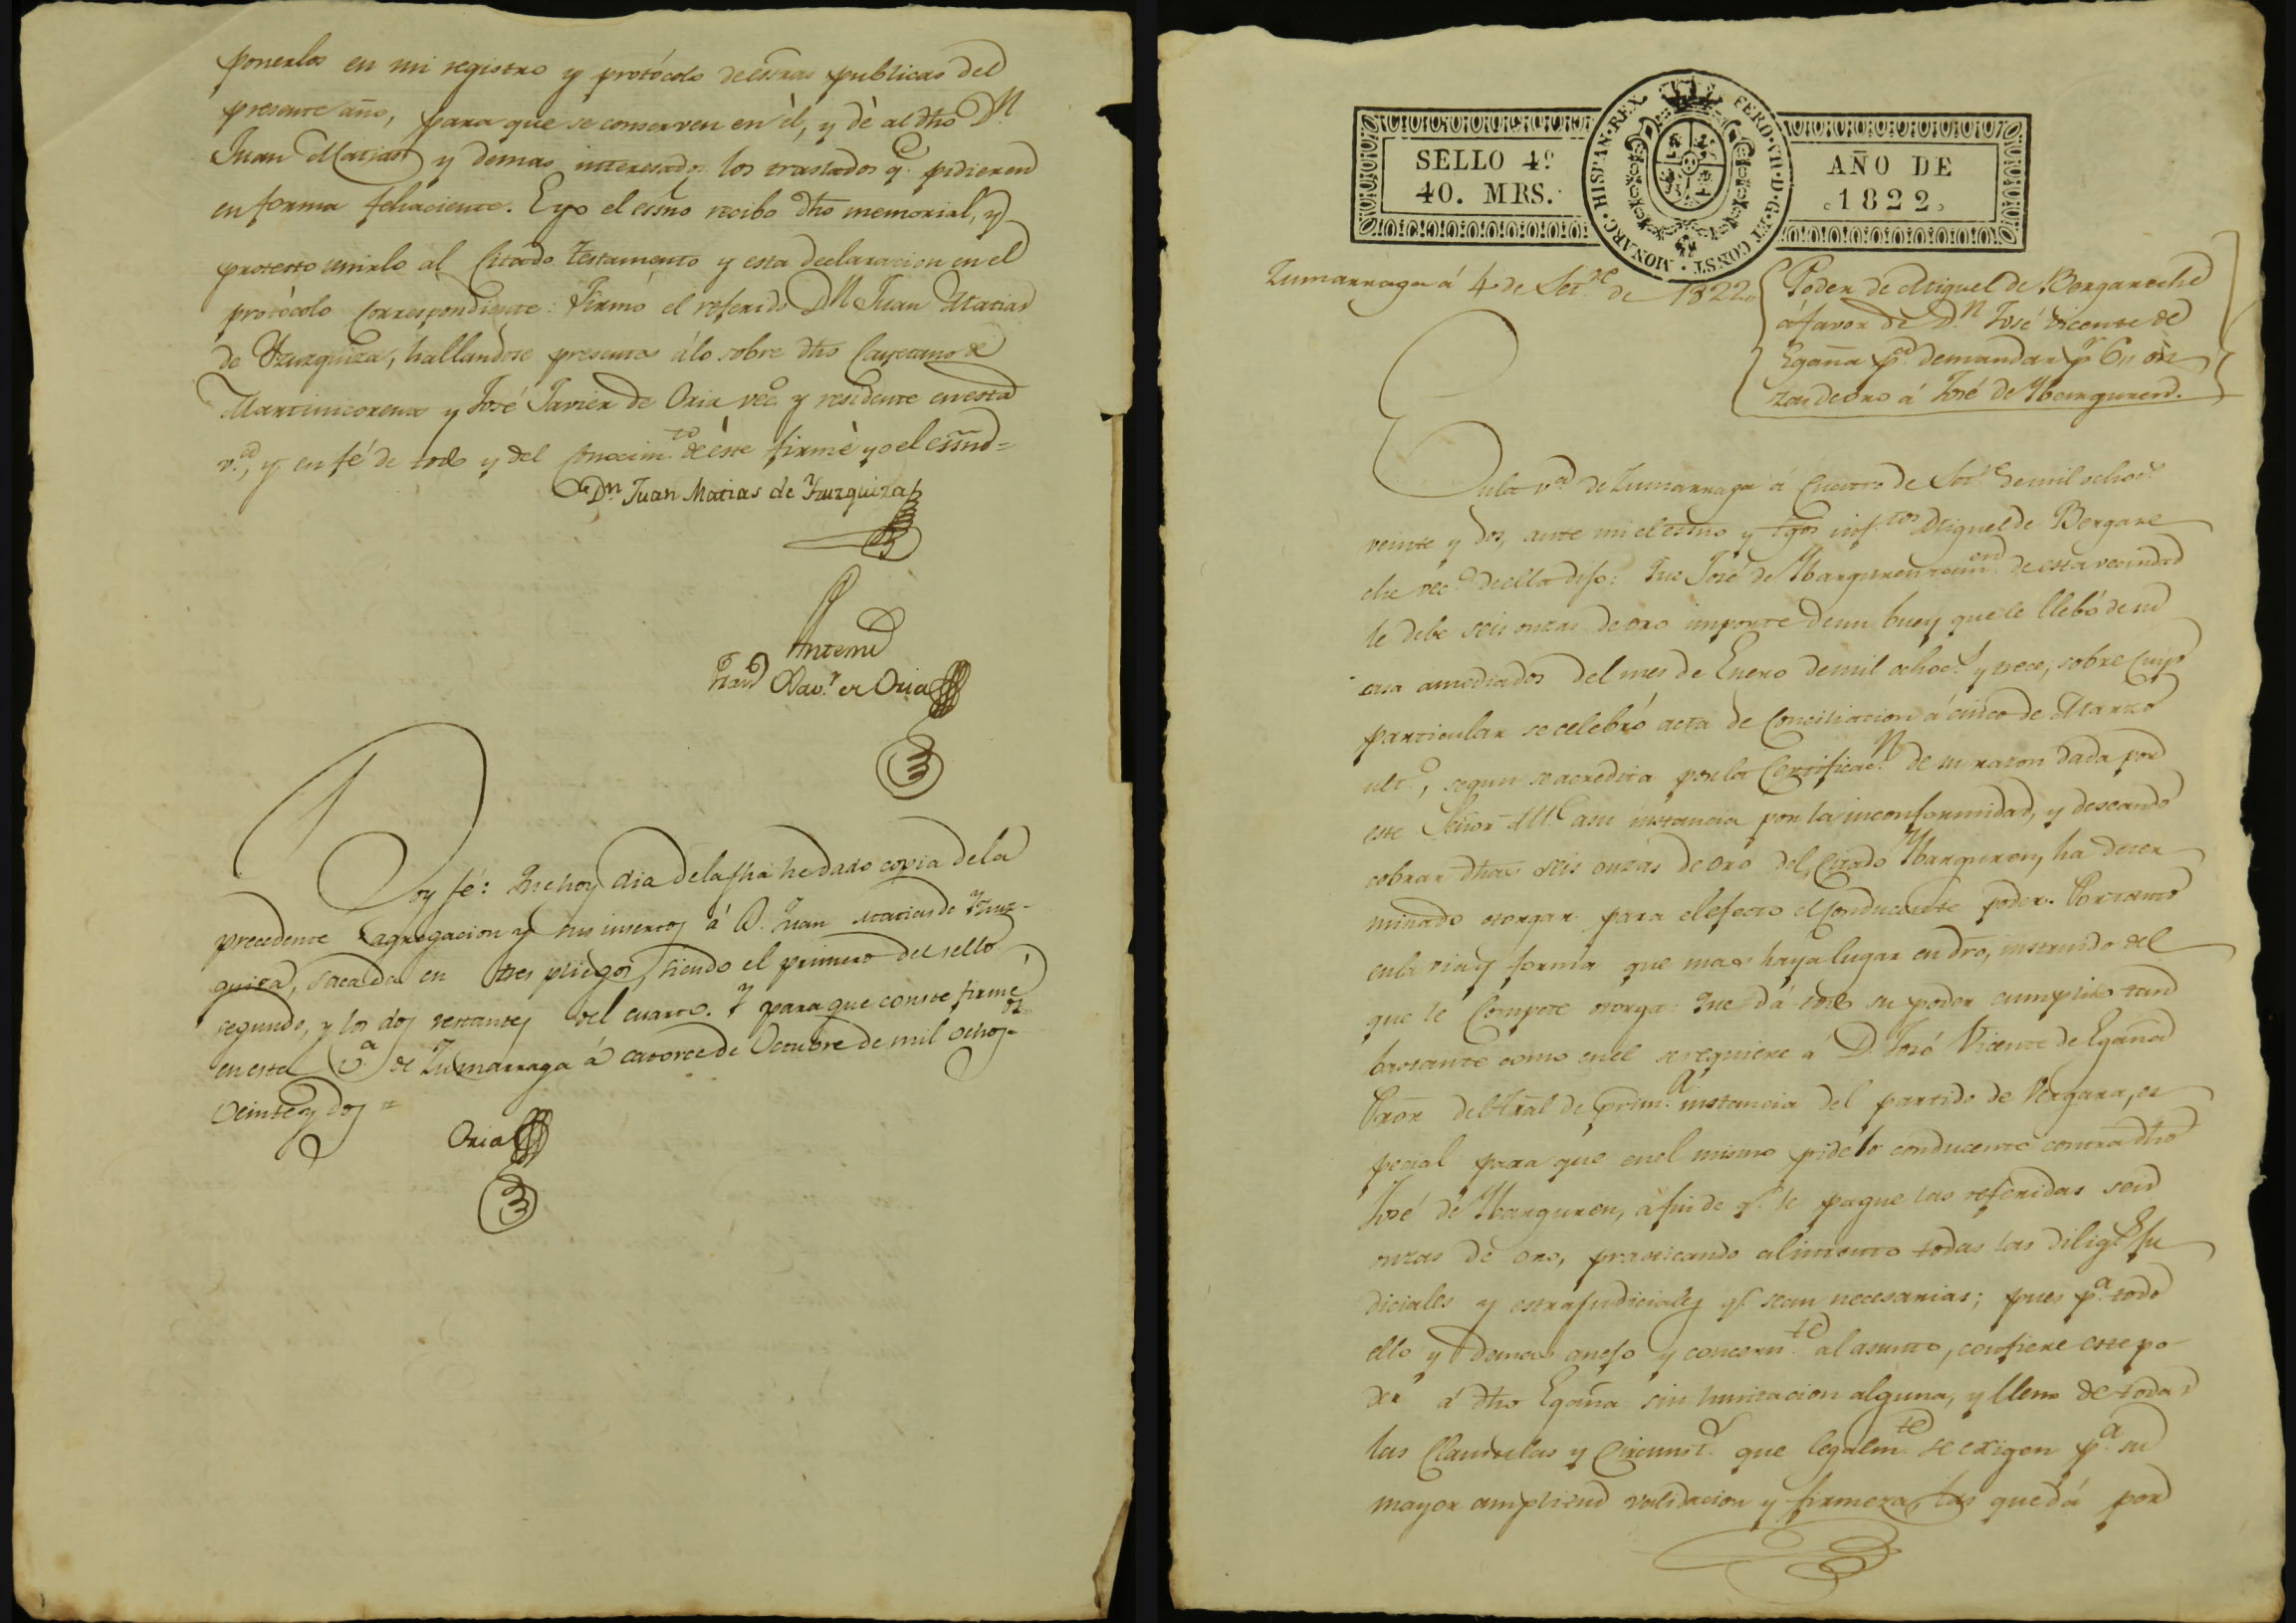 ponerlos en mi registro y protócolo de essras publicas del
presente año, para que se conserven en èl, y dè al dho Dn
Juan Matias y demas interesados los traslados q.e pidieren
en forma fehaciente. E yo el essno recibo dho memorial, y
protesto unirlo al Citado testamento y esta declaracion en el
protòcolo Correspondiente: Firmó el referido Dn Juan Matias
de Yzuzquiza, hallandose presentes á lo sobre dho Cayetano de
Martinicorena y José Javier de Oria vec.o y residente en esta
v.a, y en fé de todo y del Conocim.to de èste firmè yo el essno=
Dn Juan Matias de Yzuzquiza
Antemi
Fran.co Xav.r de Oria
Doy fé: Que hoy dia de la fha he dado copia de la
precedente agregacion y sus insertos á D. Juan Matias de Yzuz-
quiza, sacada en tres pliegos, siendo el primero del sello
segundo, y los dos restantes del cuarto. Y para que conste firmé
en esta V.a de Zumarraga á catorce de Octubre de mil ochos.os
Veinte y dos =
Oria
SELLO 4º
40. MRS.
HISPAN·REX FERD·VII·D·G·ET CONST·MONARC·
AÑO DE
1822
Zumarraga á 4 de Set.re de 1822,,
Poder de Miguel de Bergareche
á favor de D.n José Vicente de
Egaña p.a demandar p.r 6,, on
zas de oro á José de Ybarguren.
En la v.a de Zumarraga á Cuatro de Set.e de mil ochoc.s
veinte y dos, ante mi el essno y tgos inf.tos Miguel de Bergare
che vec.o de ella dijo: Que José de Ybarguren de esta vecindad
le debe seis onzas de oro importe de un buey que le llebó de su
casa a mediados del mes de Enero de mil ochoc.s y trece, sobre Cuyo
particular se celebró acta de Conciliacion á cinco de Marzo
ult.o, segun se acredita por la Certificac.n de su razon dada por
este Señor All.e a su instancia por la inconformidad, y deseando
cobrar dhas seis onzas de oro del Citado Ybarguren, ha deter
minado otorgar para el efecto el Conducente poder. Por tanto
en la via y forma que mas haya lugar en dro, instruido del
que le Compete otorga: Que dá todo su poder cumplido tan
bastante como en el se requiere á D. José Vicente de Egaña
Pror del tral de prim.a instancia del partido de Vergara, es
pecial para que en el mismo pida lo conducente contra dho
José de Ybarguren, a fin de q.e le pague las referidas seis
onzas de oro, practicando al intento todas las dilig.s ju
diciales y estrajudiciales q.e sean necesarias; pues p.a todo
ello y demas anejo y concern.te al asunto, confiere este po
der á dho Egaña sin limitacion alguna, y lleno de todas
las Clausulas y Circunst.s que legalm.te se exigen p.a su
mayor amplitud validacion y firmeza, las que dá por